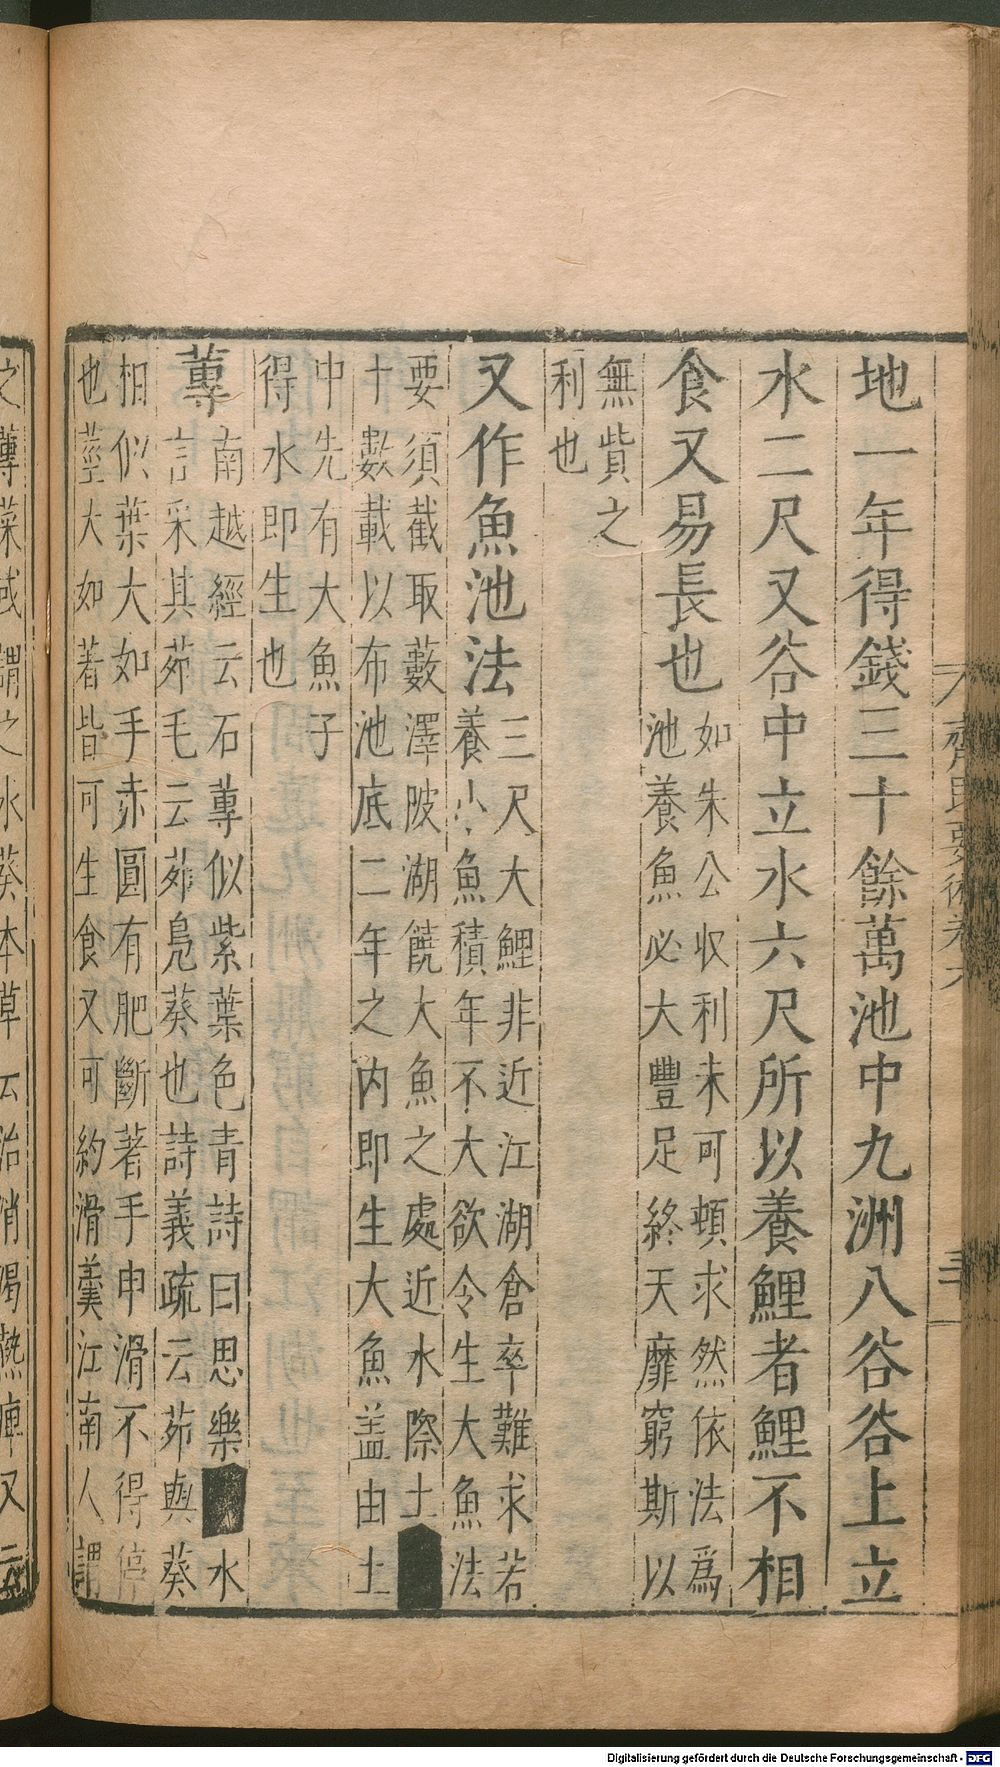 地一年得錢三十餘萬池中九洲八谷谷上立
水二尺又谷中立水六尺所以養鯉者鯉不相
食又易長也
如朱公收利未可頓求然依法爲
池養魚必大豐足終天靡窮斯以
無貲之
利也
又作魚池法
三尺大鯉非近江湖倉卒難求若
養小魚積年不大欲令生大魚法
要須截取藪澤陂湖饒大魚之處近水際土
十數載以布池底二年之内即生大魚盖由土
中先有大魚子
得水即生也
蓴
南越經云石蓴似紫葉色青詩曰思樂
水
言采其茆毛云茆鳧葵也詩義疏云茆與葵
相似葉大如手赤圓有肥斷著手中滑不得停
也莖大如著皆可生食又可約滑羹江南人謂
之蓴菜或謂之水葵本草云治消渴熱痺又云
齊民要術卷六
三十一
Digitalisierung gefördert durch die Deutsche Forschungsgemeinschaft - DFG